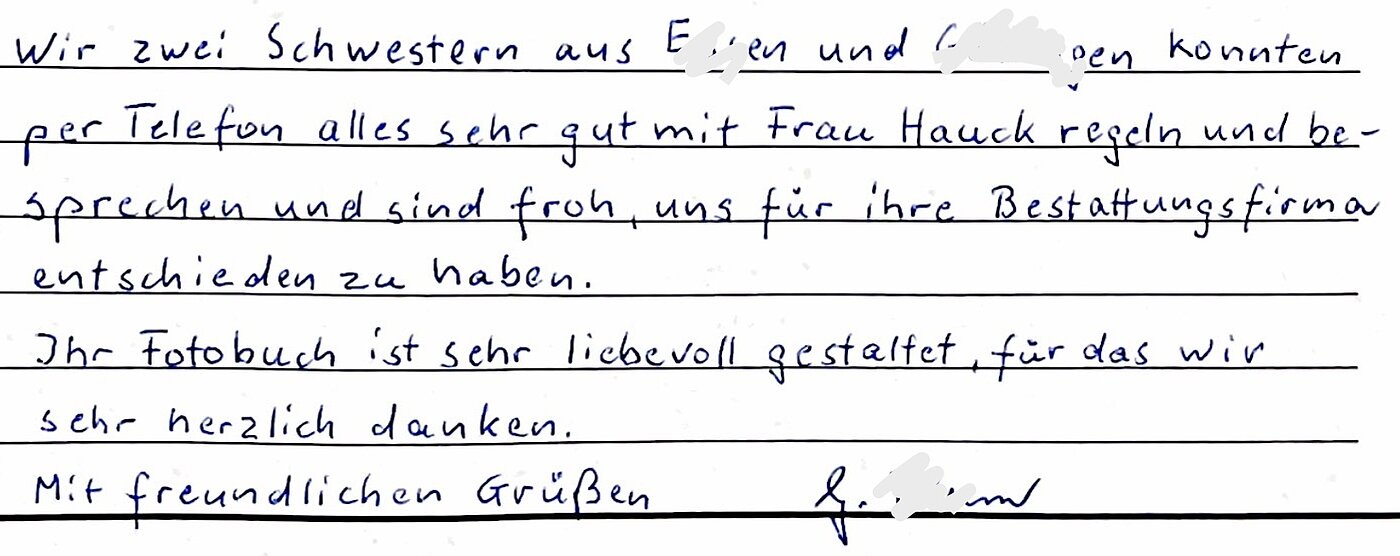 Wir zwei Schwestern aus und konnten
per Telefon alles sehr gut mit Frau Hauck regeln und be-
sprechen und sind froh, uns für ihre Bestattungsfirma
entschieden zu haben.
Ihr Fotobuch ist sehr liebevoll gestaltet, für das wir
sehr herzlich danken.
Mit freundlichen Grüßen